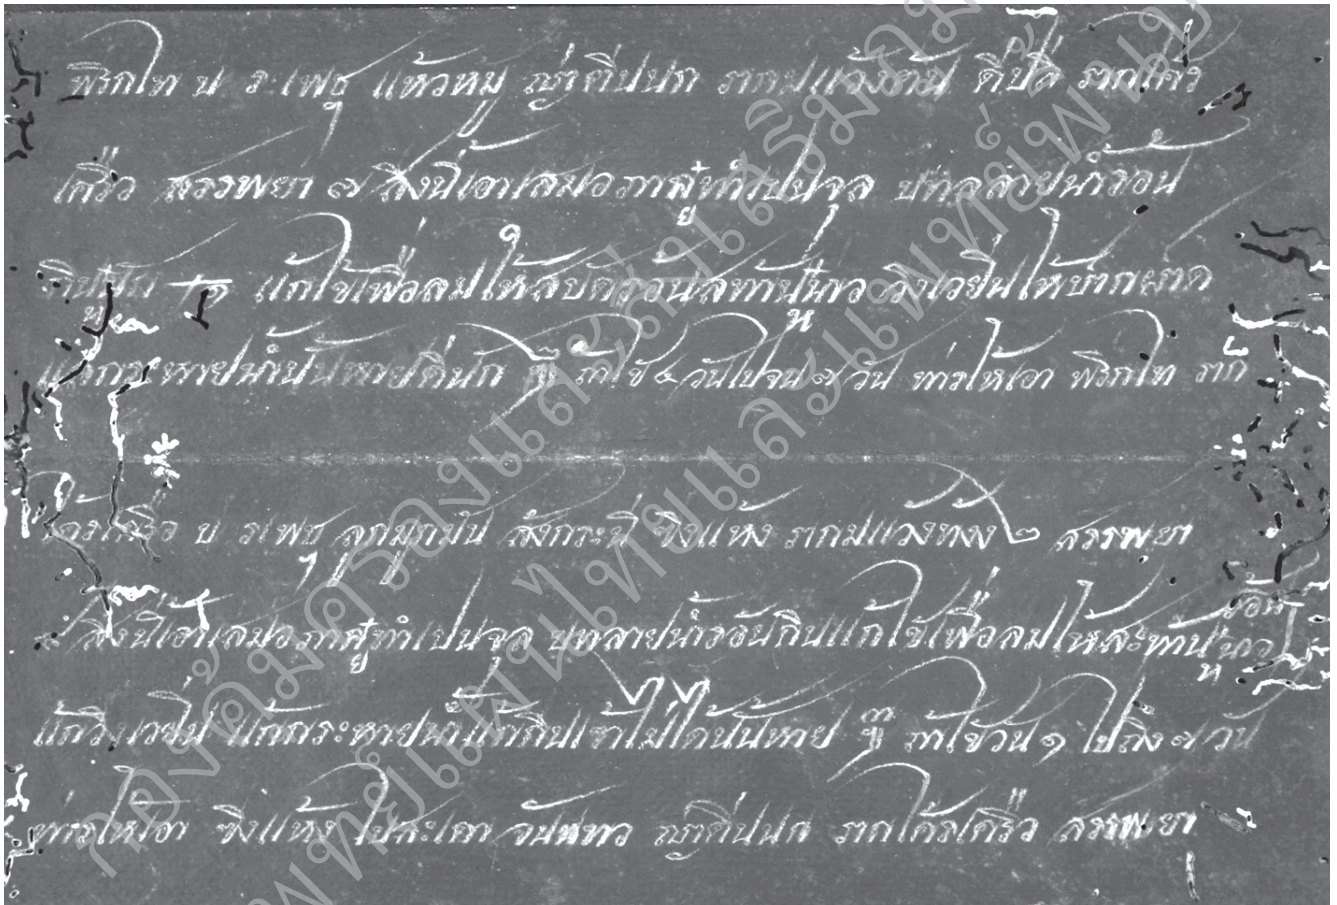 พริกไท ป ร เพชุ แห้วหมู ญ่าตีนนก รากมแว้งตัน ดีปลี รากไคร้
เครือ สรรพยา ๗ สิ่งนี้เอาเสมอภาคย์ทำเปนจุล บทลลายน้ำร้อน
กิน แก้ไข้เพื่อลมให้สบัดร้อนสท้านหนาว วิงเวียนให้ปากฝาด
แก้กระหายน้ำนั้นหายดีนัก ถ้าไข้ ๔ วันไปจน ๗ วัน ท่ารให้เอา พริกไท ราก
ไคร้เครือ ป รเพชุ ลูกมูกมัน สังกระนี ขิงแห้ง รากมแว้งทัง ๒ สรรพยา
สิ่งนี้เอาเสมอภาคย์ทำเปนจุล บทลายน้ำร้อนกินแก้ไข้เพื่อลมให้สะท้านร้อนหนาว
แก้วิงเวียน แก้กระหายน้ำ แก้กินเข้าไม่ได้นั้นหาย ถ้าไข้วัน ๑ ไปถึง ๗ วัน
ท่ารให้เอา ขิงแห้ง ใบสะเดา จันทหาว ญ่าตีนนก รากไคร้เครือ สรรพยา
กองคุ้มครองและส่งเสริมภูมิ
แพทย์แผนไทยและแพทย์พื้นบ